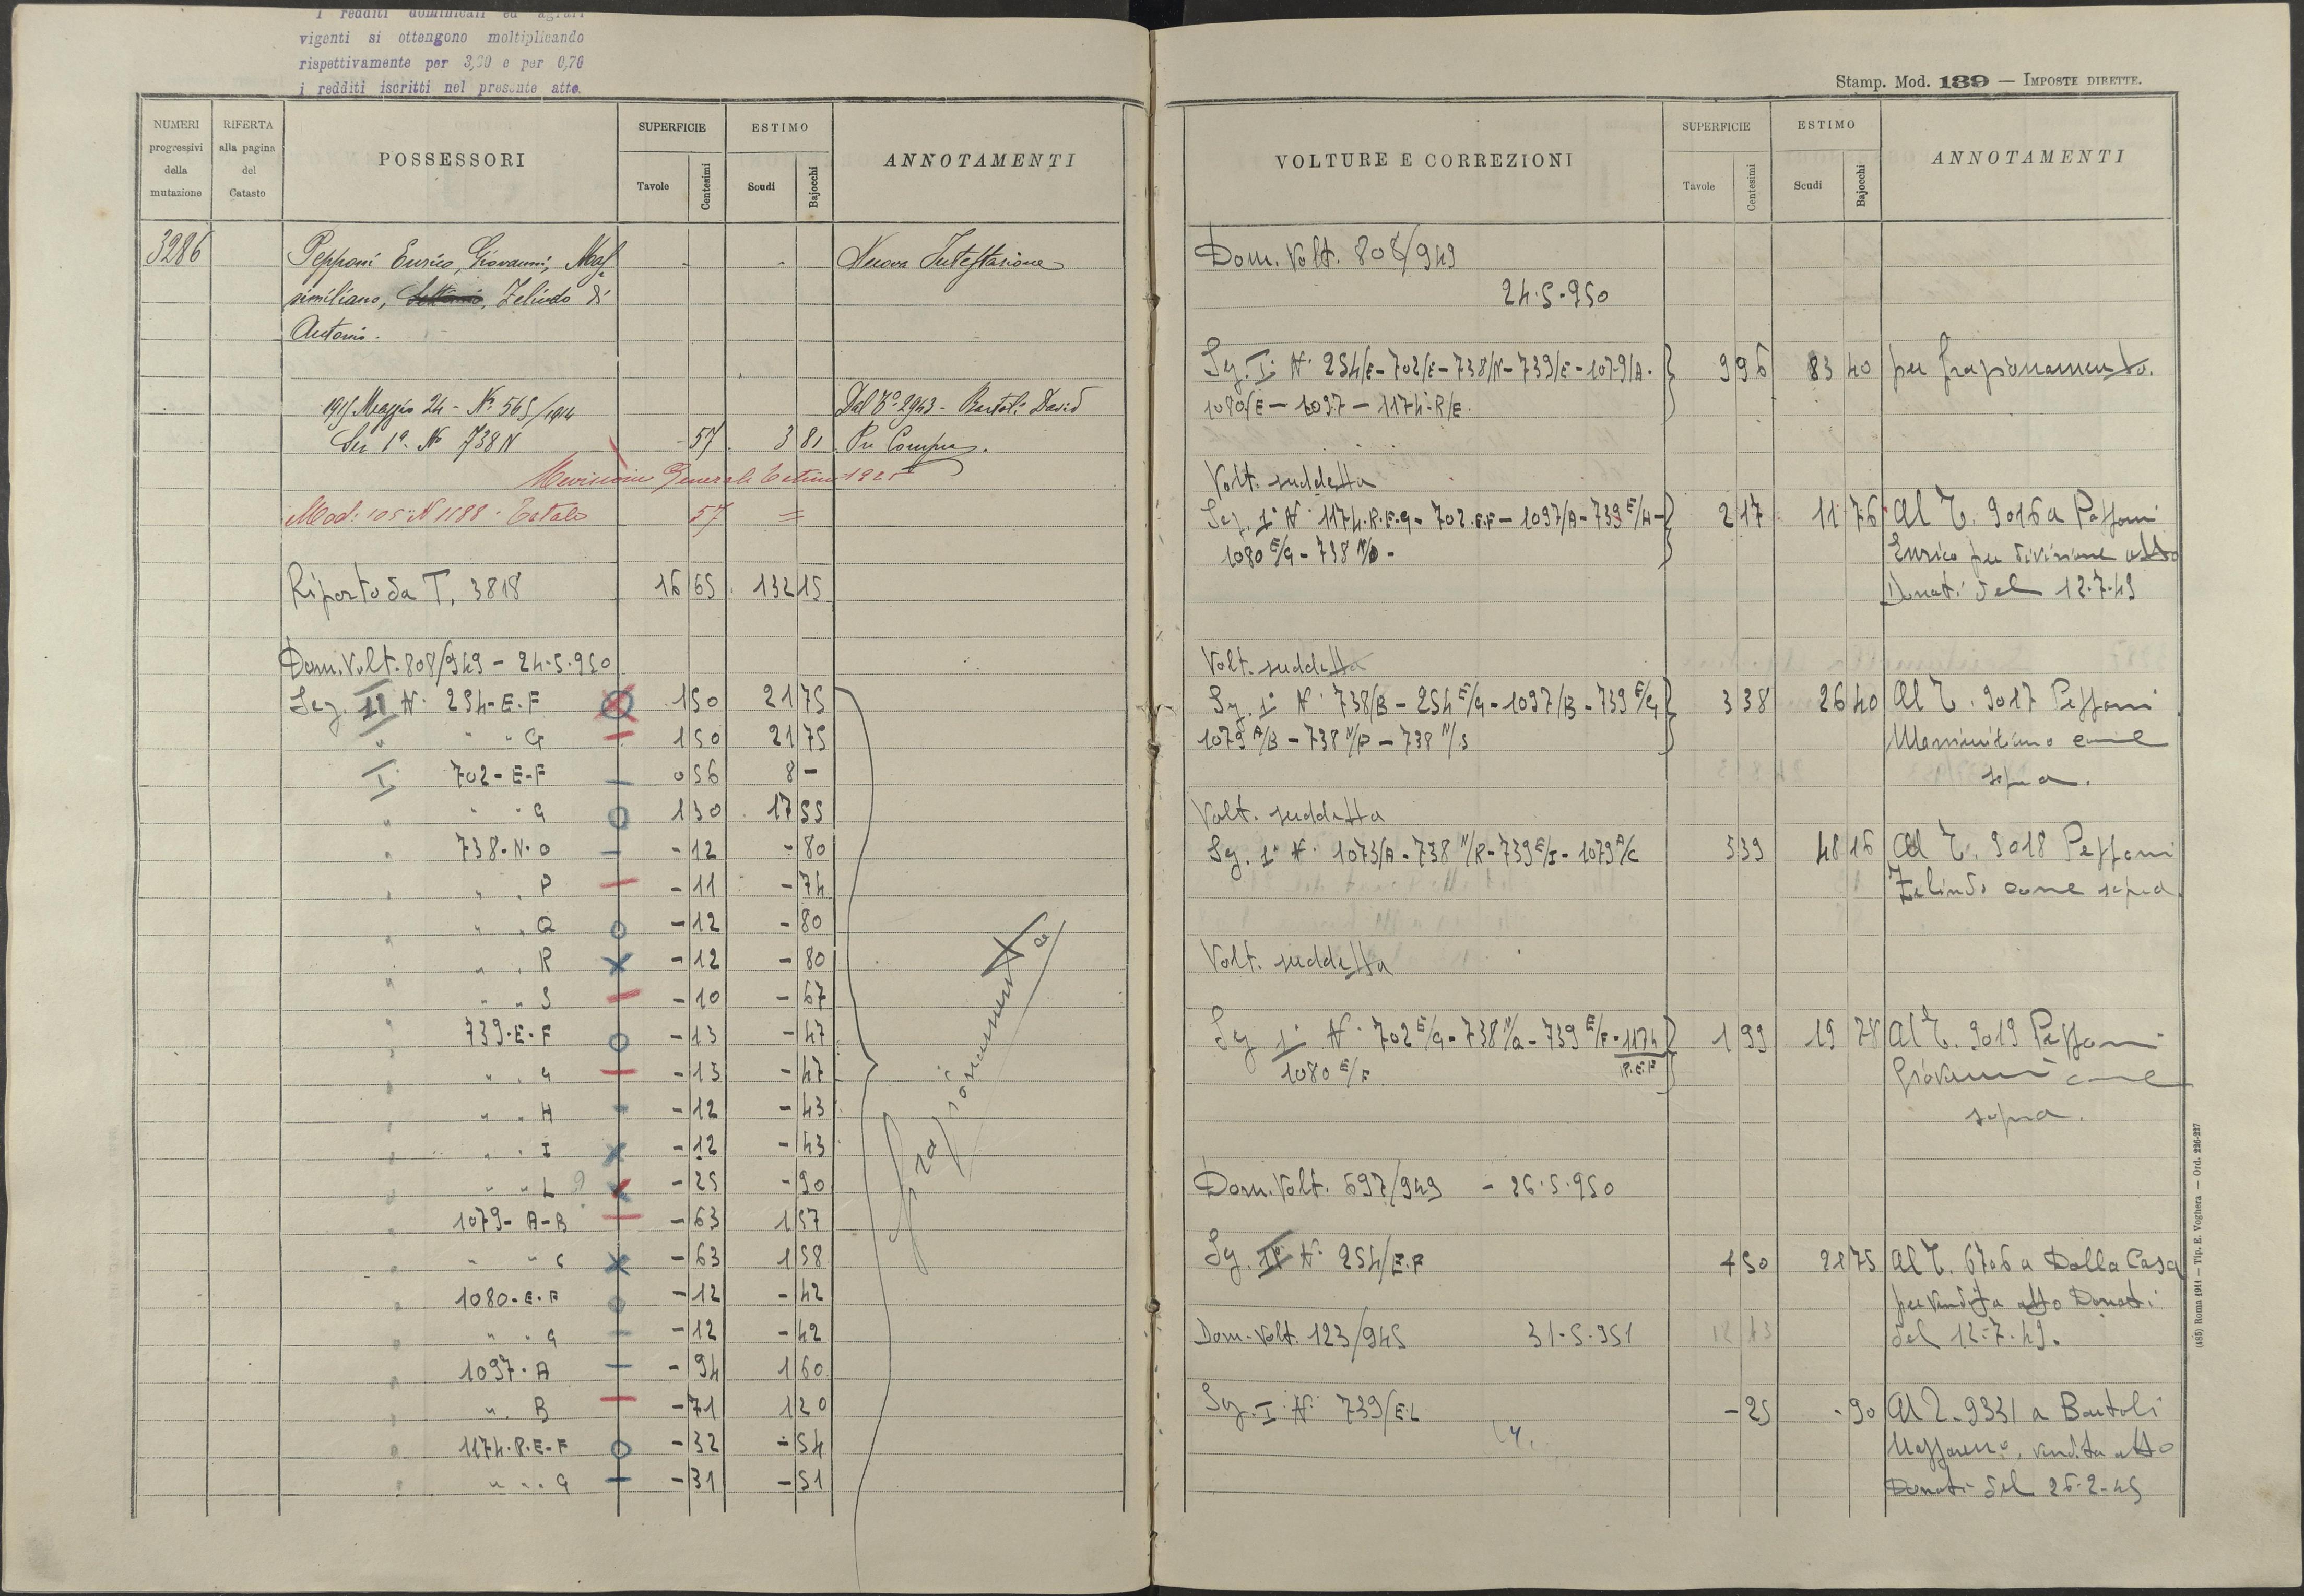 I redditi dominicali ed agrari
vigenti si ottengono moltiplicando
rispettivamente per 3,20 e per 0,70
i redditi iscritti nel presente atto.
NUMERI progressivi della mutazione
RIFERTA alla pagina del Catasto
POSSESSORI
SUPERFICIE
Tavole
Centesimi
ESTIMO
Scudi
Bajocchi
ANNOTAMENTI
3286 Pepponi Enrico, Giovanni, Mas- Nuova Intestazione
similiano, Zelindo di
Antonio.
1915 Maggio 24 - N.º 565/1914 Dal T.º 2943 - Bartoli David
Sez 1ª. Nº 738 N - 57 3 81 Per Compra.
Revisione Generale Estimi 1925
Mod: 105 N 1188 - Totale 57 =
Riporto da T. 3818 16 65 132 15
Dom. Volt. 808/949 - 24-5-950
Sez. II N. 254-E-F 1 50 21 75
" " " G 1 50 21 75
I 702-E-F 0 56 8 -
" " " G 1 30 17 55
" 738-N-O - 12 - 80
" " " P - 11 - 74
" " " Q - 12 - 80
" " " R - 12 - 80
" " " S - 10 - 67
" 739-E-F - 13 - 47
" " " G - 13 - 47
" " " H - 12 - 43
" " " I - 12 - 43
" " " L - 25 - 90
" 1079-A-B - 63 1 57
" " " C - 63 1 58
" 1080-E-F - 12 - 42
" " " G - 12 - 42
" 1097-A - 94 1 60
" " B - 71 1 20
" 1174-R-E-F - 32 - 54
" " " G - 31 - 51
frazionamento
Stamp. Mod. 139 — IMPOSTE DIRETTE.
VOLTURE E CORREZIONI
SUPERFICIE
Tavole
Centesimi
ESTIMO
Scudi
Bajocchi
ANNOTAMENTI
Dom. Volt. 808/949
24-5-950
Sez. I N. 254/E-702/E-738/N-739/E-1079/A- 9 96 83 40 per frazionamento.
1080/E-1097-1174-R/E.
Volt. suddetta
Sez. 1ª N. 1174-R-E-G-702-E-F-1097/A-739 E/H- 2 17 11 76 Al T. 9016 a Pepponi
1080 E/G-738 N/O- Enrico per divisione atto
Donati del 12-7-49
Volt. suddetta
Sez. 1ª N. 738/B-254 E/G-1097/B-739 E/G 3 38 26 40 Al T. 9017 Pepponi
1079 A/B-738 N/P-738 N/S Massimiliano come
sopra.
Volt. suddetta
Sez. 1ª N. 1073/A-738 N/R-739 E/I-1079 A/C 5 39 48 16 Al T. 9018 Pepponi
Zelindo come sopra
Volt. suddetta
Sez 1ª N. 702 E/G-738 N/Q-739 E/F-1174 R.E.F 1 99 19 78 Al T. 9019 Pepponi
1080 E/F Giovanni come
sopra.
Dom. Volt. 697/949 - 26-5-950
Sez. II N. 254/E.F 1 50 21 75 Al T. 6706 a Dalla Casa
per vendita atto Donati
Dom. Volt. 123/945 31-5-951 12 43 del 12-7-49.
Sez. I N. 739/E.L - 25 - 90 Al T. 9331 a Bartoli
vendita atto
Donati del 26-2-45
(485) Roma 1941 — Tip. E. Voghera — Ord. 226-227